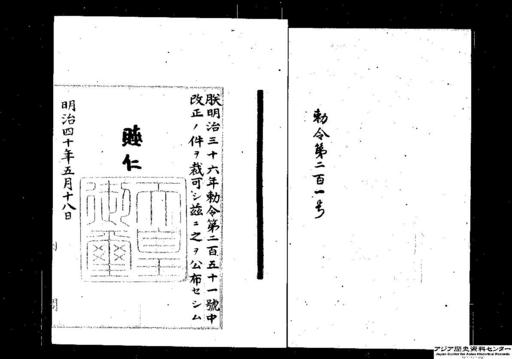 勅令第二百一号
朕明治三十六年勅令第二百五十一號中
改正ノ件ヲ裁可シ茲ニ之ヲ公布セシム
睦仁
天皇
御璽
明治四十年五月十八日
アジア歴史資料センター
Japan Center for Asian Historical Records